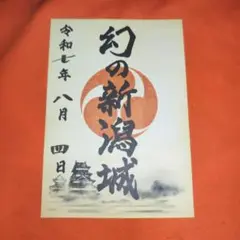 幻の新潟城
令和七年八月四日